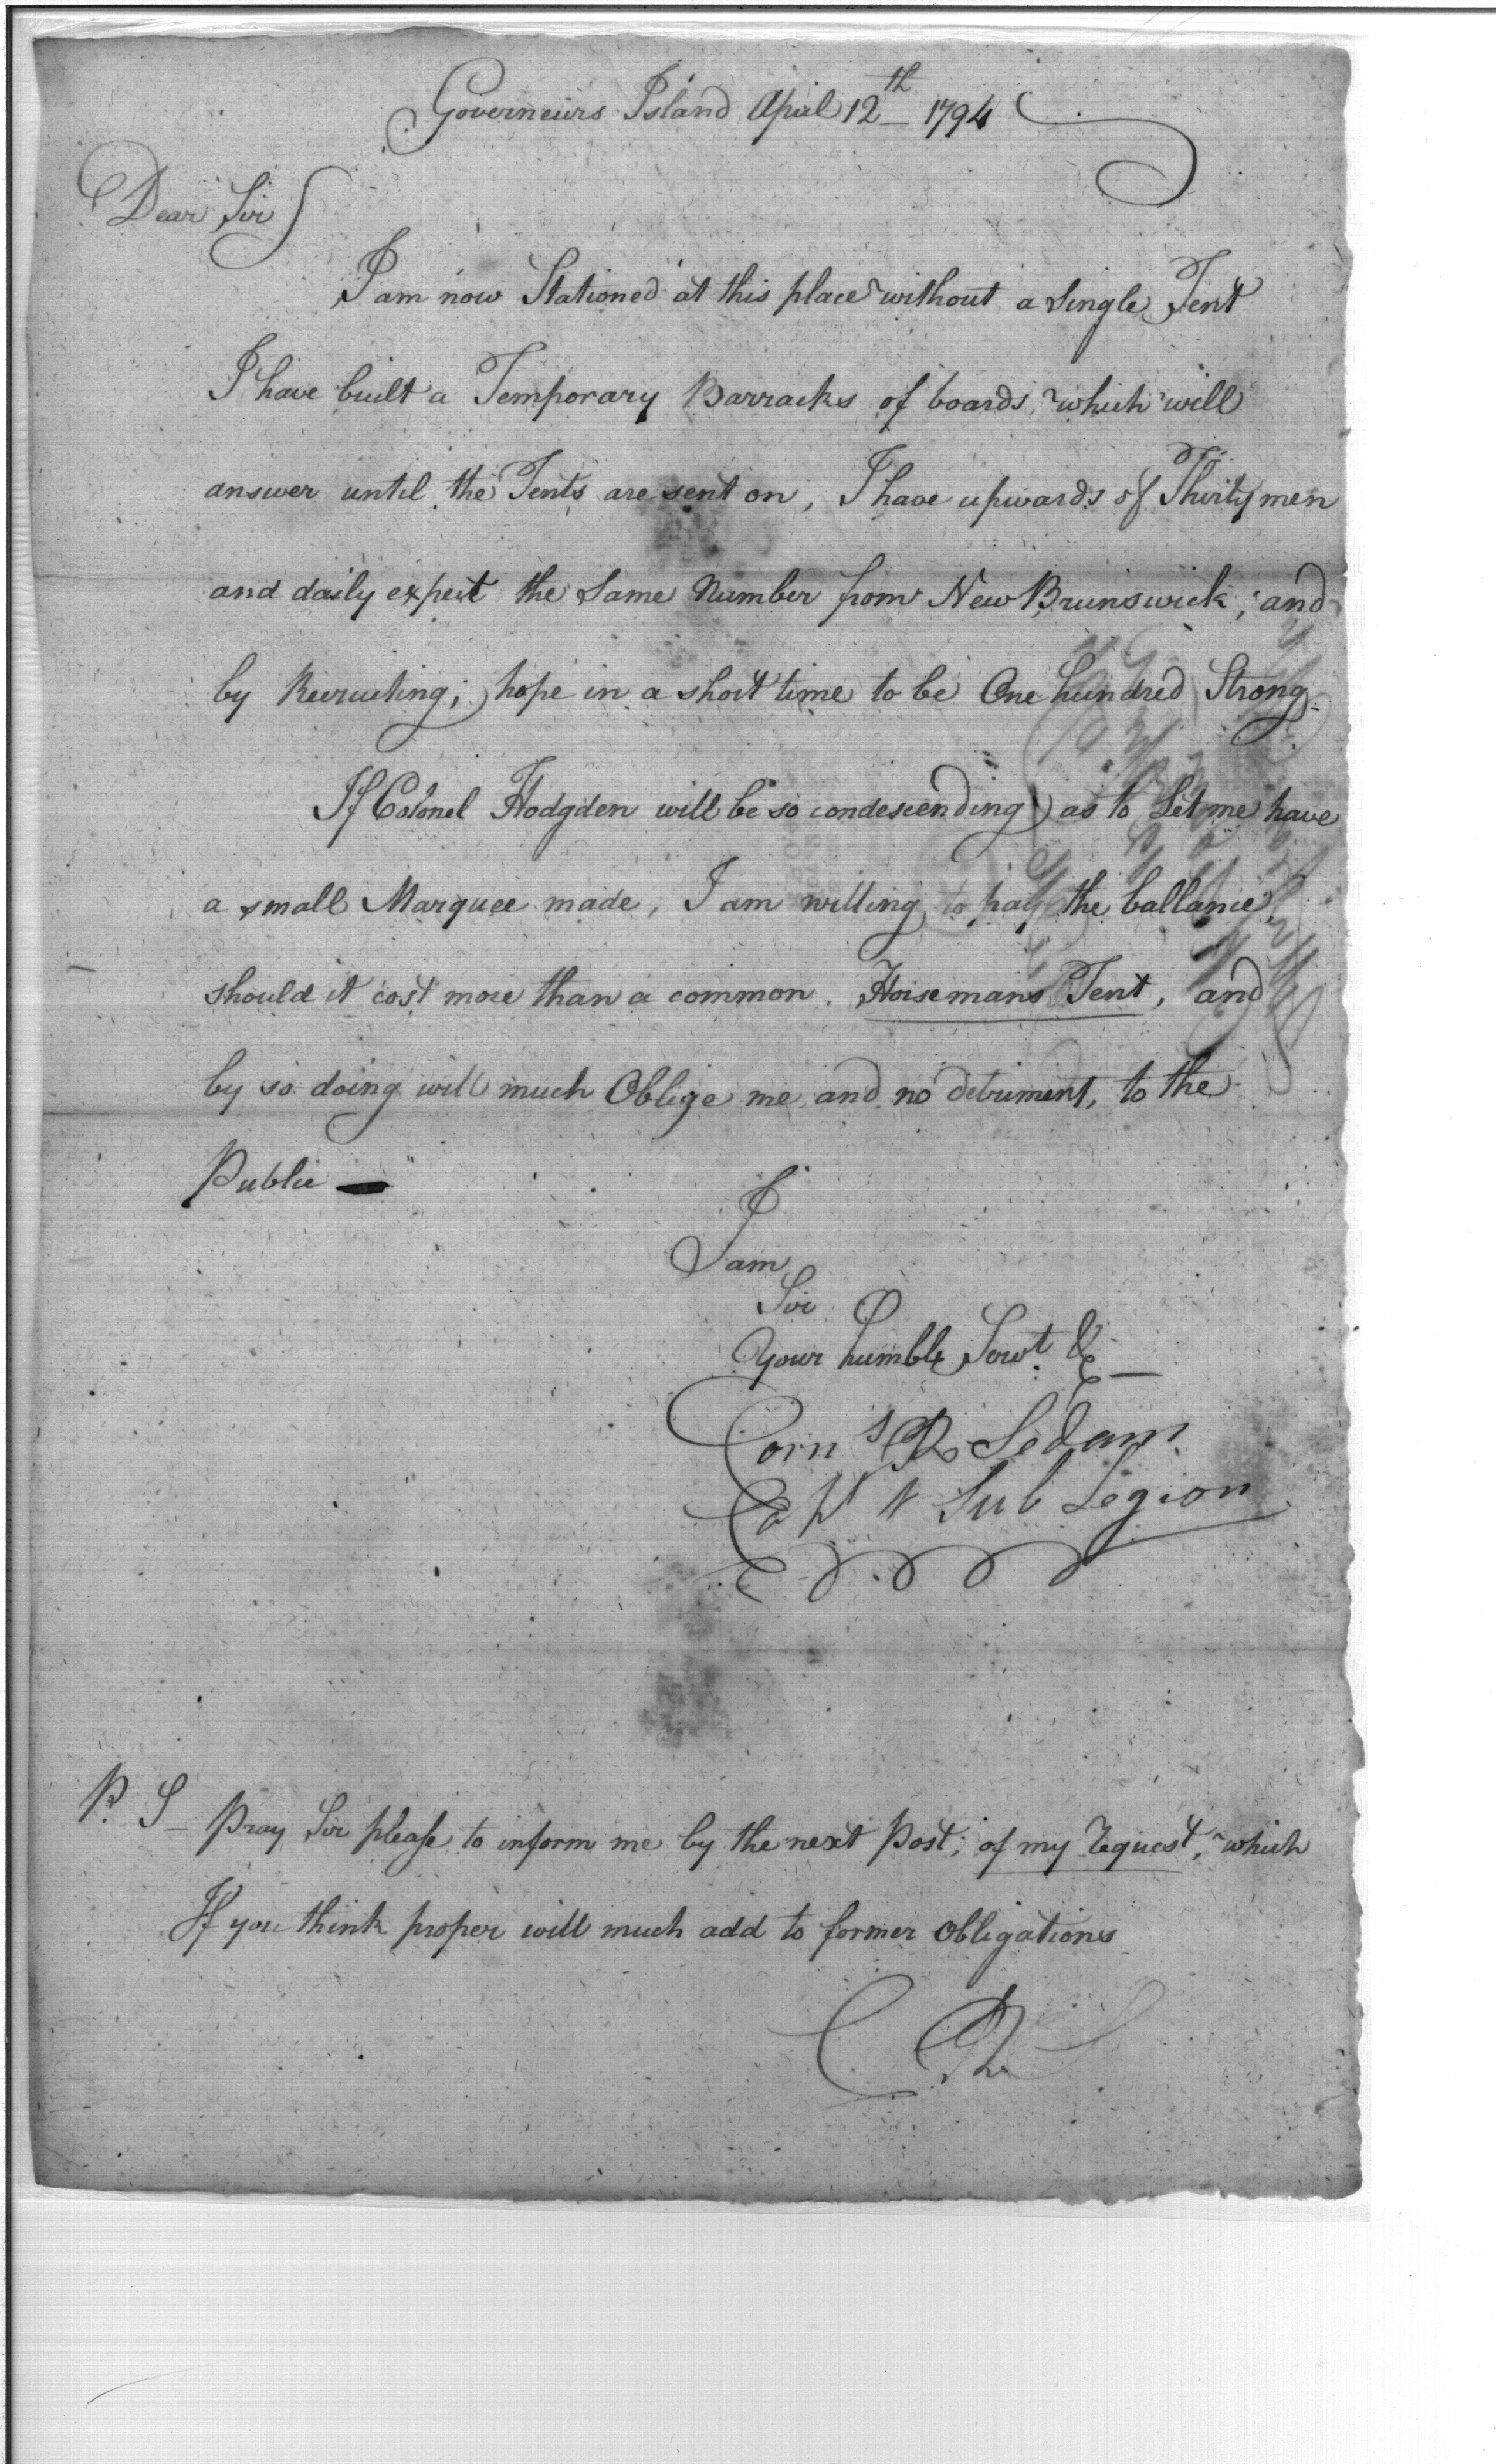 Governeurs Island April 12th 1794
Dear Sir
I am now Stationed at this place without a Single Tent
I have built a Temporary Barracks of boards, which will
answer until the Tents are sent on, I have upwards of Thirty men
and daily expect the Same Number from New Brunswick; and
by Recruiting; hope in a short time to be One hundred Strong.
If Colonel Hodgden will be so condescending as to Let me have
a small Marquee made, I am willing to pay the ballance,
should it cost more than a common. Horsemans Tent, and
by so doing will much Oblige me and no detriment, to the
Public —
I am
Sir
Your humble Servt. &
Corns R Sedam
Capt Sub Legion
P. S — Pray Sir please to inform me by the next Post; of my request, which
If you think proper will much add to former obligations
C R S